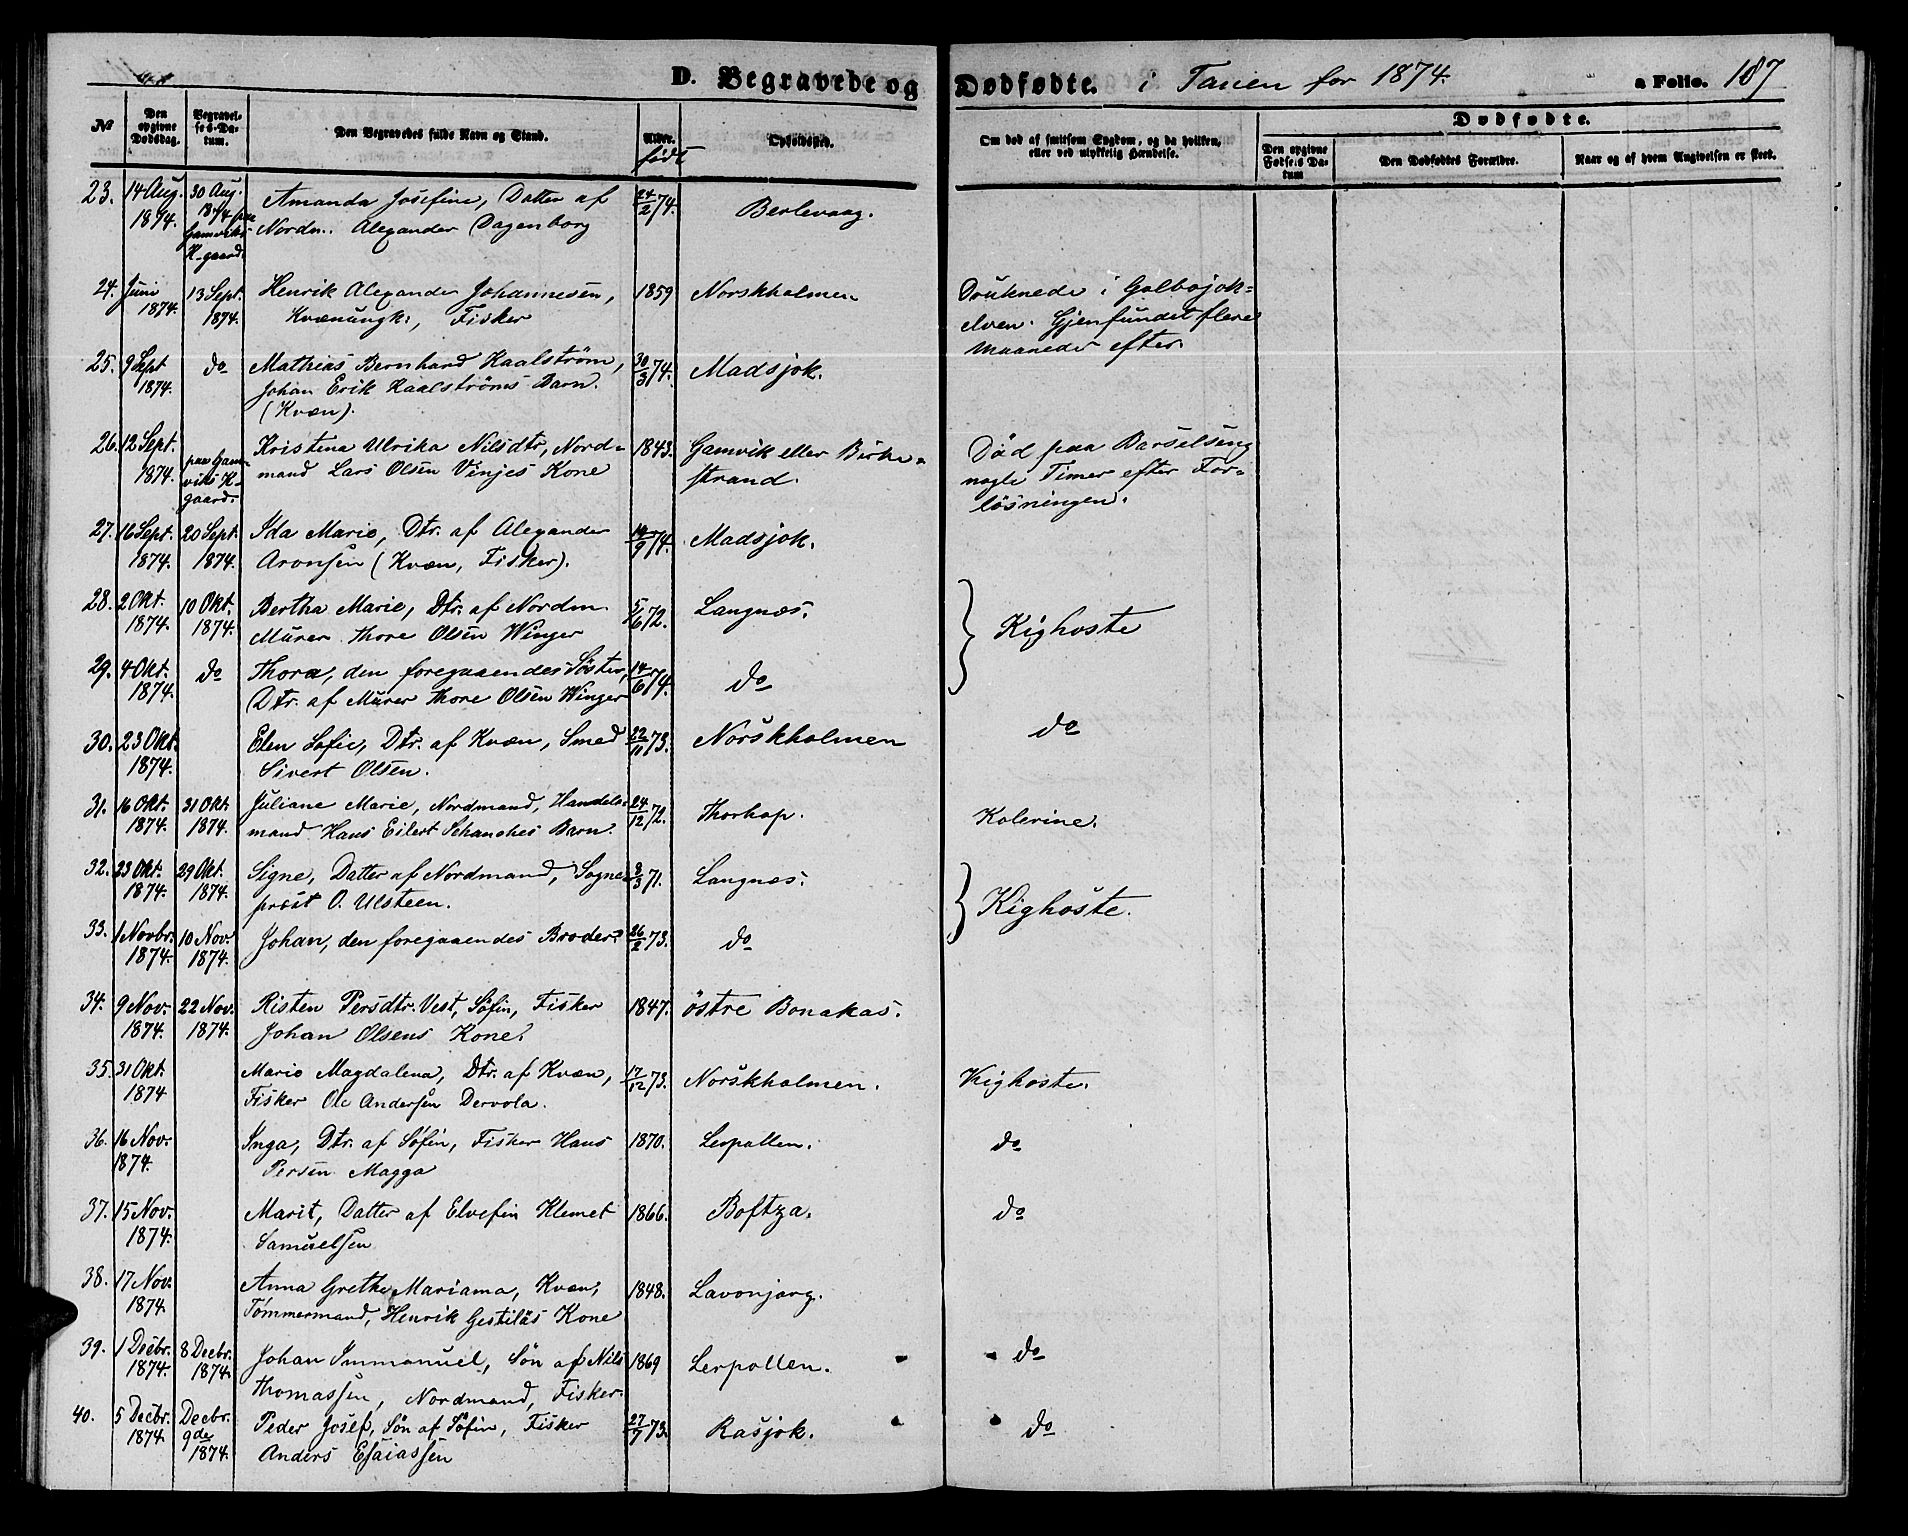 D. Begravede og Dødfødte. i Tanen for 1874. a Folio. 187
No
Den opgivne Dødsdag.
Begravelses-Datum.
Den Begravedes fulde Navn og Stand.
Alder.
født
Opholdssted.
Om død af smitsom Sygdom, og da hvilken,
eller ved ulykkelig Hændelse.
Dødfødte.
Den opgivne Fødsels Datum
Den Dødfødtes Forældre.
Naar og af hvem Angivelsen er skeet.
23. 14 Aug. 1874. 30 Aug. 1874 paa Gamviks K-gaard.
Amanda Josefine, Datter af
Nordm. Alexander Dagenborg
24/2 74. Berlevaag.
24. Juni 1874. 13 Sept. 1874.
Henrik Alexander Johannesen,
Kvænungk:, Fisker
1859 Norskholmen
Druknede i Golbojok-
elven. Gjenfundet flere
Maaneder efter.
25. 9 Sept 1874. do
Mathias Bernhard Kaalström,
Johan Erik Kaalströms Barn.
(Kvæn).
30/3 74. Madsjok.
26. 12 Sept. 1874. paa Gamviks K-gaard.
Kristina Ulrika Nilsdtr, Nord-
mand Lars Olsen Vinjes Kone
1843. Gamvik eller Birke-
strand.
Død paa Barselseng
nogle Timer efter For-
løsningen.
27. 16 Sept. 1874. 20 Sept. 1874.
Ida Marie, Dtr. af Alexander
Aronsen (Kvæn, Fisker).
14/9 74. Madsjok.
28. 2 Okt. 1874. 10 Okt. 1874.
Bertha Marie, Dtr. af Nordm.
Murer Thore Olsen Winger
5/6 72. Langnæs.
} Kighoste
29. 4 Okt. 1874. do
Thora, den foregaaendes Søster,
Dtr. af Murer Thore Olsen Winger
14/6 74. do
30. 23 Okt. 1874.
Elen Sofie, Dtr. af Kvæn, Smed
Sivert Olsen.
22/11 73. Norskholmen do
31. 16 Okt. 1874. 31 Okt. 1874.
Juliane Marie, Nordmand, Handels-
mand Hans Eilert Schanches Barn.
24/12 72. Thorhop. Kolerine.
32. 23 Okt. 1874. 29 Okt. 1874.
Signe, Datter af Nordmand, Sogne-
præst O. Ulsteen.
3/3 71. Langnæs.
} Kighoste.
33. 1 Novbr. 1874. 10 Nov. 1874.
Johan, den foregaaendes Broder.
26/2 73. do
34. 9 Nov. 1874. 22 Nov. 1874.
Risten Persdtr. Vest, Søfin, Fisker
Johan Olsens Kone.
1847. östre Bonakas.
35. 31 Okt. 1874
Marie Magdalena, Dtr. af Kvæn,
Fisker Ole Andersen Dervola.
17/12 73. Norskholmen. Kighoste.
36. 16 Nov. 1874.
Inga, Dtr. af Søfin, Fisker Hans
Persen Magga
1870. Lerpollen. do
37. 15 Nov. 1874.
Marit, Datter af Elvefin Klemet
Samuelsen
1866. Boftza. do
38. 17 Nov. 1874.
Anna Grethe Mariama, Kvæn,
Tømmermand, Henrik Gestiläs Kone
1848. Lavonjarg.
39. 1 Decbr. 1874. 8 Decbr. 1874.
Johan Immanuel, Søn af Nils
Thomassen, Nordmand, Fisker.
1869 Lerpollen. do
40. 5 Decbr. 1874 Decbr. 9de 1874.
Peder Josef, Søn af Søfin, Fisker
Anders Esaiassen
27/7 73. Rasjok. do